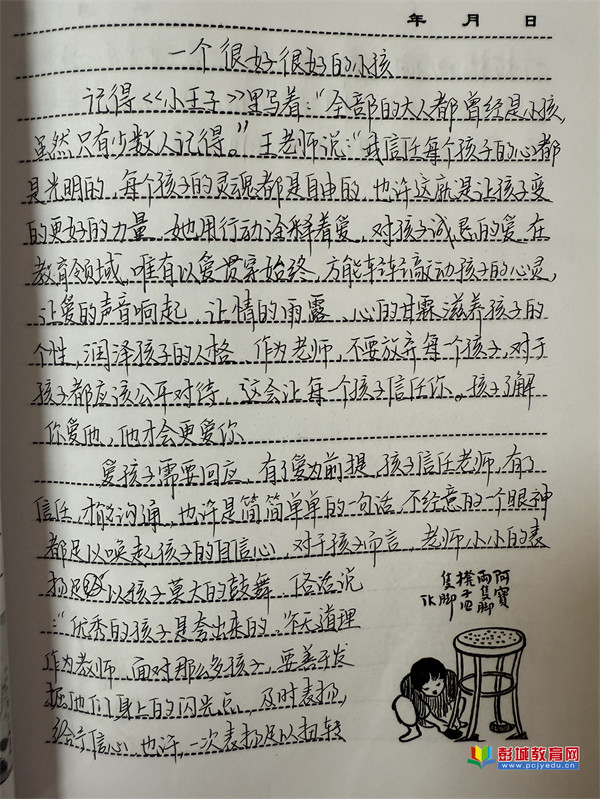 年 月 日
一个很好很好的小孩
记得《小王子》里写着:“全部的大人都曾经是小孩,
虽然只有少数人记得。”王老师说:“我信任每个孩子的心都
是光明的,每个孩子的灵魂都是自由的,也许这就是让孩子变
的更好的力量,她用行动诠释着爱,对孩子诚恳的爱,在
教育领域,唯有以爱贯穿始终,方能轻轻敲动孩子的心灵,
让爱的声音响起,让情的雨露、心的甘霖滋养孩子的
个性,润泽孩子的人格 作为老师,不要放弃每一个孩子,对于
孩子都应该公平对待,这会让每一个孩子信任你。孩子了解
你爱他,他才会更爱你
爱孩子需要回应,有了爱为前提,孩子信任老师,有了
信任,才能沟通,也许是简简单单的一句话,不经意的一个眼神
都足以唤起孩子的自信心,对于孩子而言,老师小小的表
扬足以给孩子莫大的鼓舞 俗话说
:“优秀的孩子是夸出来的。”不无道理
作为教师,面对那么多孩子,要善于发
掘他们身上的闪光点,及时表扬,
给予信心,也许,一次表扬足以扭转
阿寶
兩隻脚
凳子四
隻脚
TK
彭城教育网
www.pcjyedu.cn